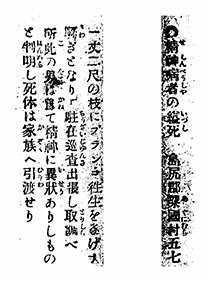 ◎精神病者の縊死 島尻郡 國村五七
一丈二尺の枝にブランコ往生を
騒ぎとなり駐在巡査出張し取調べ
所此の男は曾て精神に異狀ありしもの
と判明し死体は家族へ引渡せり